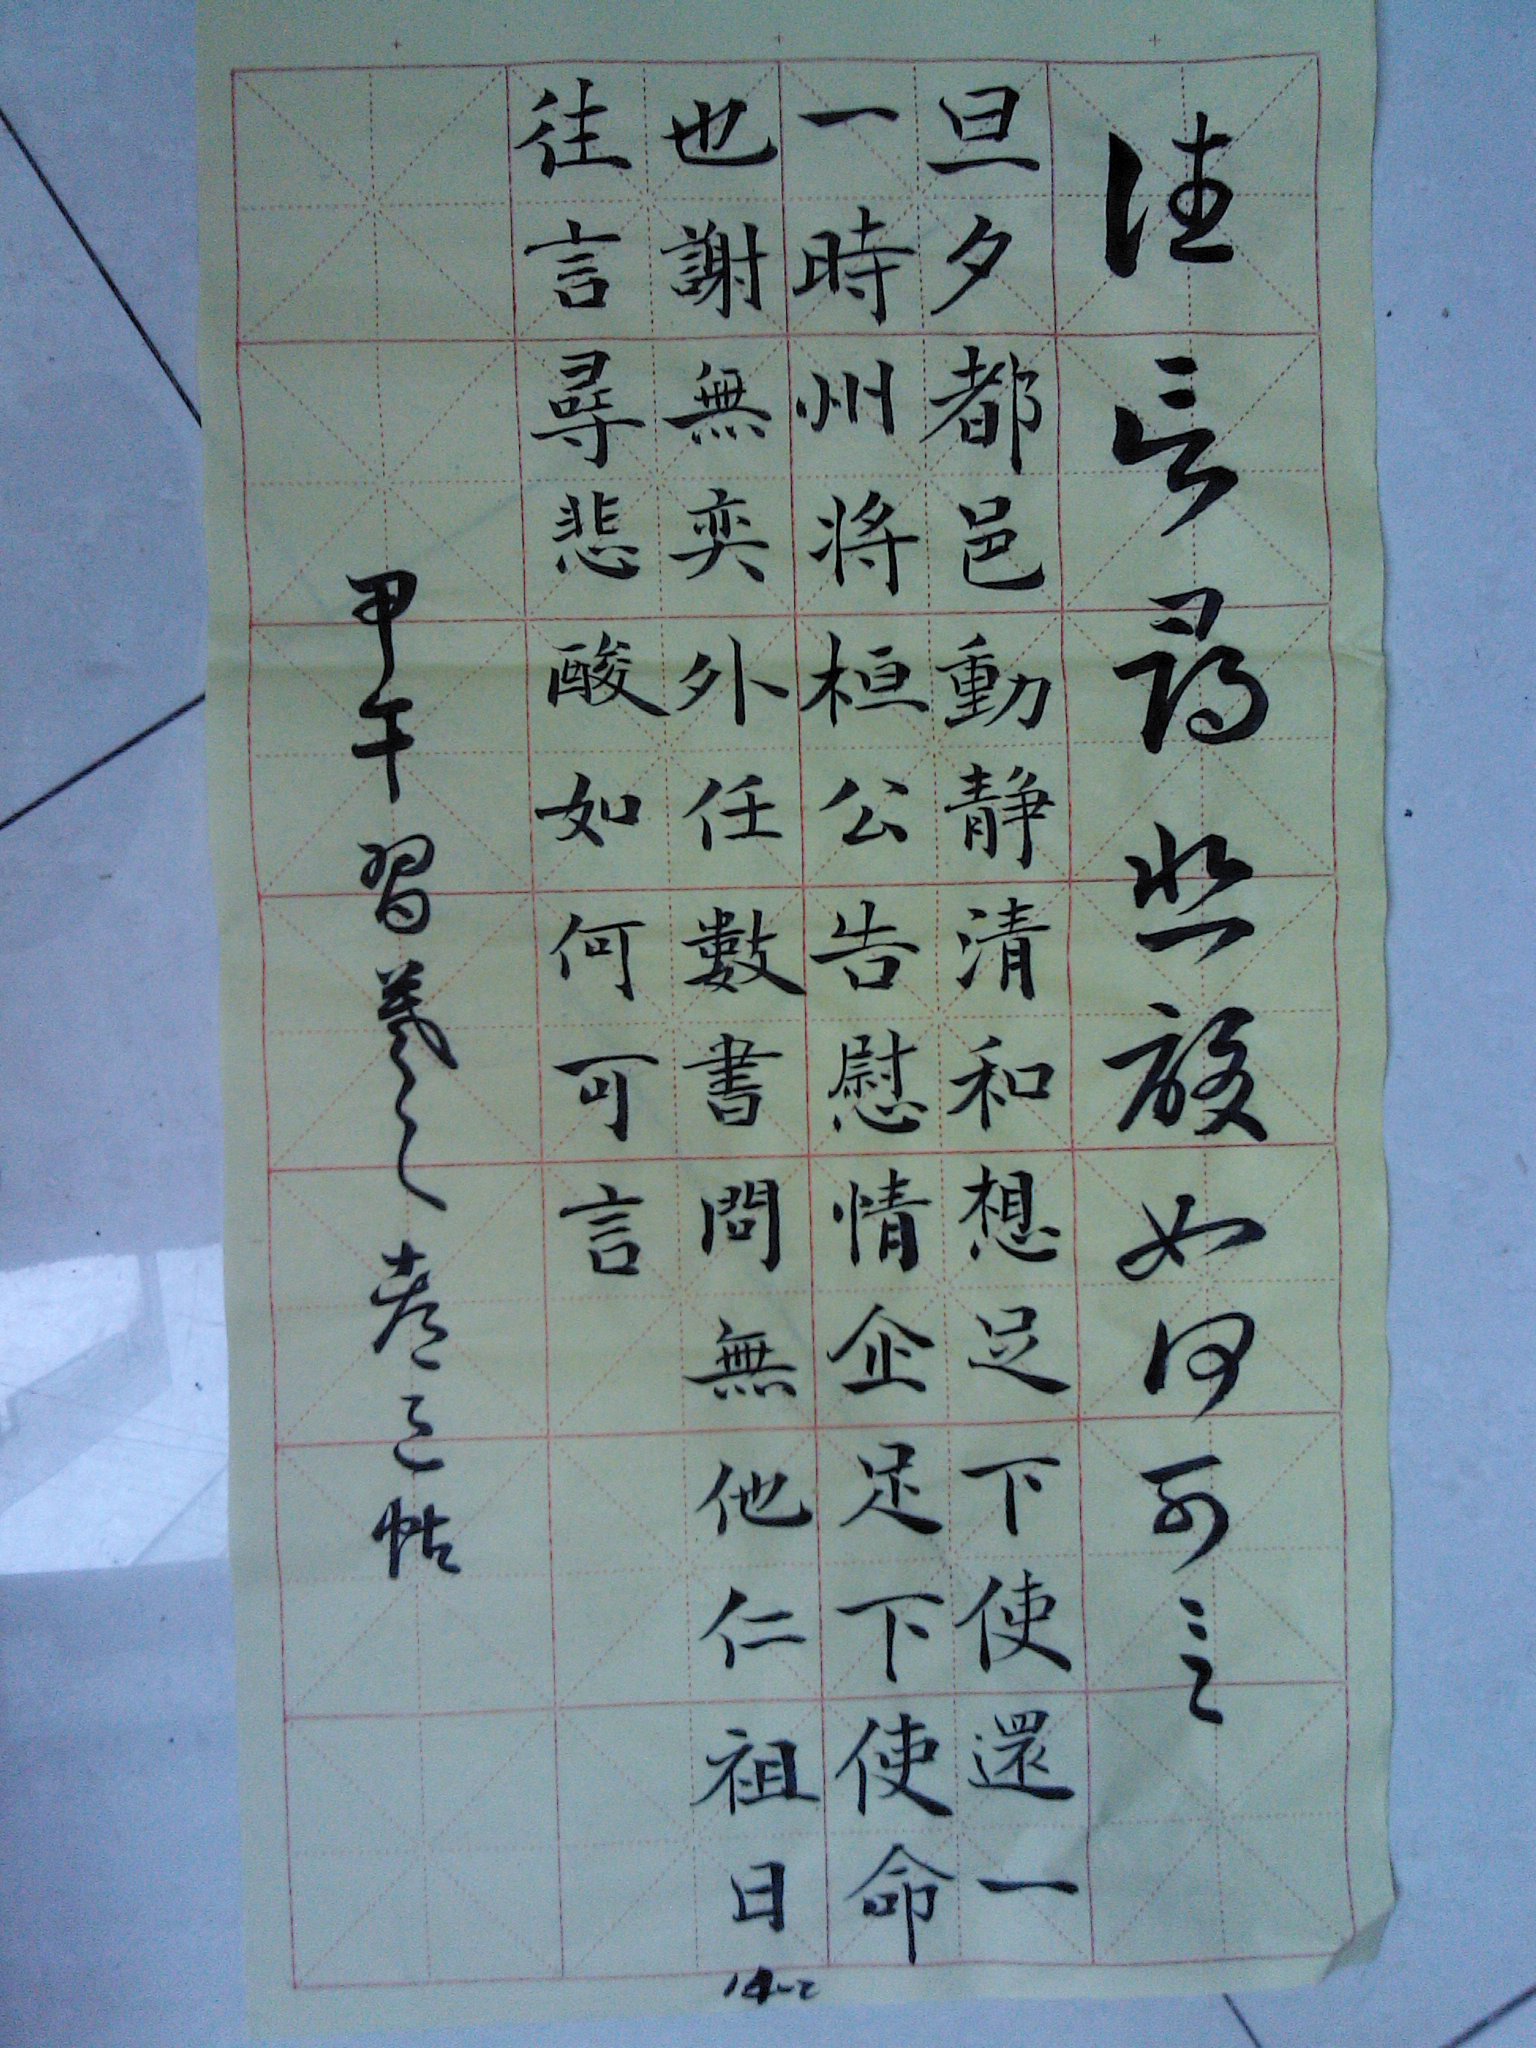 往言尋悲酸如何可言
旦夕都邑動静清和想足下使還一
一時州将桓公告慰情企足下使命
也謝無奕外任數書問無他仁祖日
往言尋悲酸如何可言
甲午習羲之都邑帖
14-2